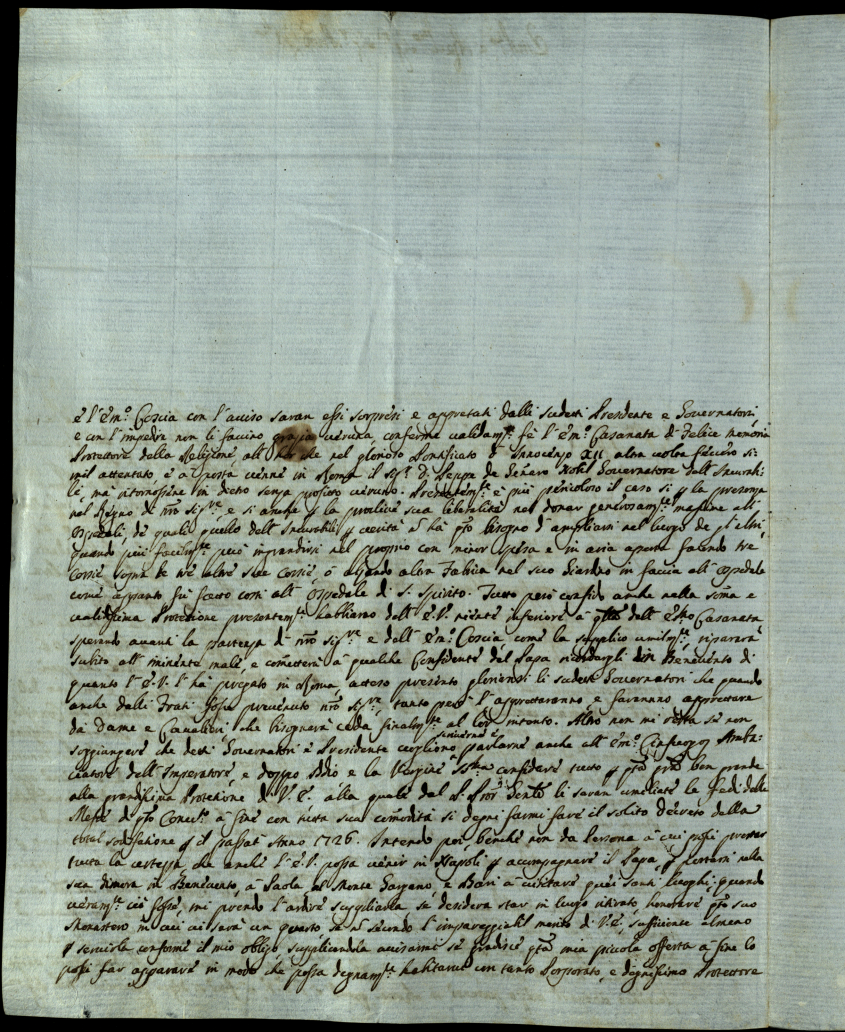 è l'Em.º Coscia con l'aviso saran essi sorpresi e appretati dalli sudetti Presidente e Governatori
e con l'impedire non li faccino grazia veruna, conforme validam.te fè l'Em.º Casanata di felice memoria
Protettore della Religione all' che nel glorioso Pontificato d'Innocenzo XII altra volta fecero si:
mil attentato è a posta venne in Roma il Sig.r D. Peppe de Gen̄aro Nobil Governatore dell'Incurabi:
li, mà ritornossene in dietro senza profitto veruno. Presentem.te è più pericoloso il caso si p la presenza
nel Regno di nrō Sig.re, e si anche p la prolive sua liberalità nel donar generosam.te massime all'
Ospedali, de quali quello dell'Incurabili p verità n̄ hà bisogno d'ampliarsi nel luogo de gl'altri
quando più facilm.te può ingrandirsi nel proprio con minor spesa e in aria aperta facendo tre
Corsie sopra le trè altre sue Corsie, ò alzando altra fabrica nel suo Giardino in faccia all'ospedale
come appunto fu fatto costì all'Ospedale di S. Spirito. Tutto però confido anche nella som̄a e
validissima Protezione presentem.te habbiamo dell'E.V. niente inferiore à q̄lla dell' Casanata
sperando avanti la partenza di nrō Sig.re e dell'Em.º Coscia come la supplico umilm.te, riparerà
subito all'iminente male, e com̄etterà à qualche Confidente del Papa ricordargli in Benevento di
quanto l'E.V. l'hà pregato in Roma, atteso presento gloriarsi li sudetti Governatori che quando
anche dalli Frati fosse prevenuto nrō Sig.re, tanto però l'aspettaranno, e faranno appretare
dà Dame e Cavalieri che bisognarà ceda finalm.te al lor intento. Altro non mi resta se non
soggiungere che detti Governatori e Presidente vogliono scriverne e parlarne anche all'Em.º Cinfuegos Amba:
sciatore dell'Imperatore, e doppo Iddio e la Vergine SS.ma confidare tutto p ben prende
alla grandissima Protezione di V.E. alla quale dal P. Prōr Genle li saran umiliate le Fedi delle
Messe di q̄sto Conv.to à fine con tutta sua comodità si degni farmi fare il solito decreto della
total sodisfatione p il passat'Anno 1726. Intendo poi, benche non da Persona à cui possi prestar
tutta la certezza che anche l'E.V. possa venir in Napoli p accompagnare il Papa, p portarsi nella
sua dimora in Benevento, à Paola al Monte Gargano, e Bari à visitare quei Santi luoghi; quando
veram.te ciò fosse, mi prendo l'ardire supplicarla se desidera star in luogo ritirato, honorare q̄sto suo
Monastero in cui vi sarà un quarto se n̄ secondo l'impareggiabil merito di V.E., sufficiente almeno
p servirla conforme il mio obligo, supplicandola avisarmi se gradisce q̄sta mia piccola offerta à fine lo
possi far apparare in modo che possa degnam.te habitarvi un tanto Porporato, e degnissimo Protettore